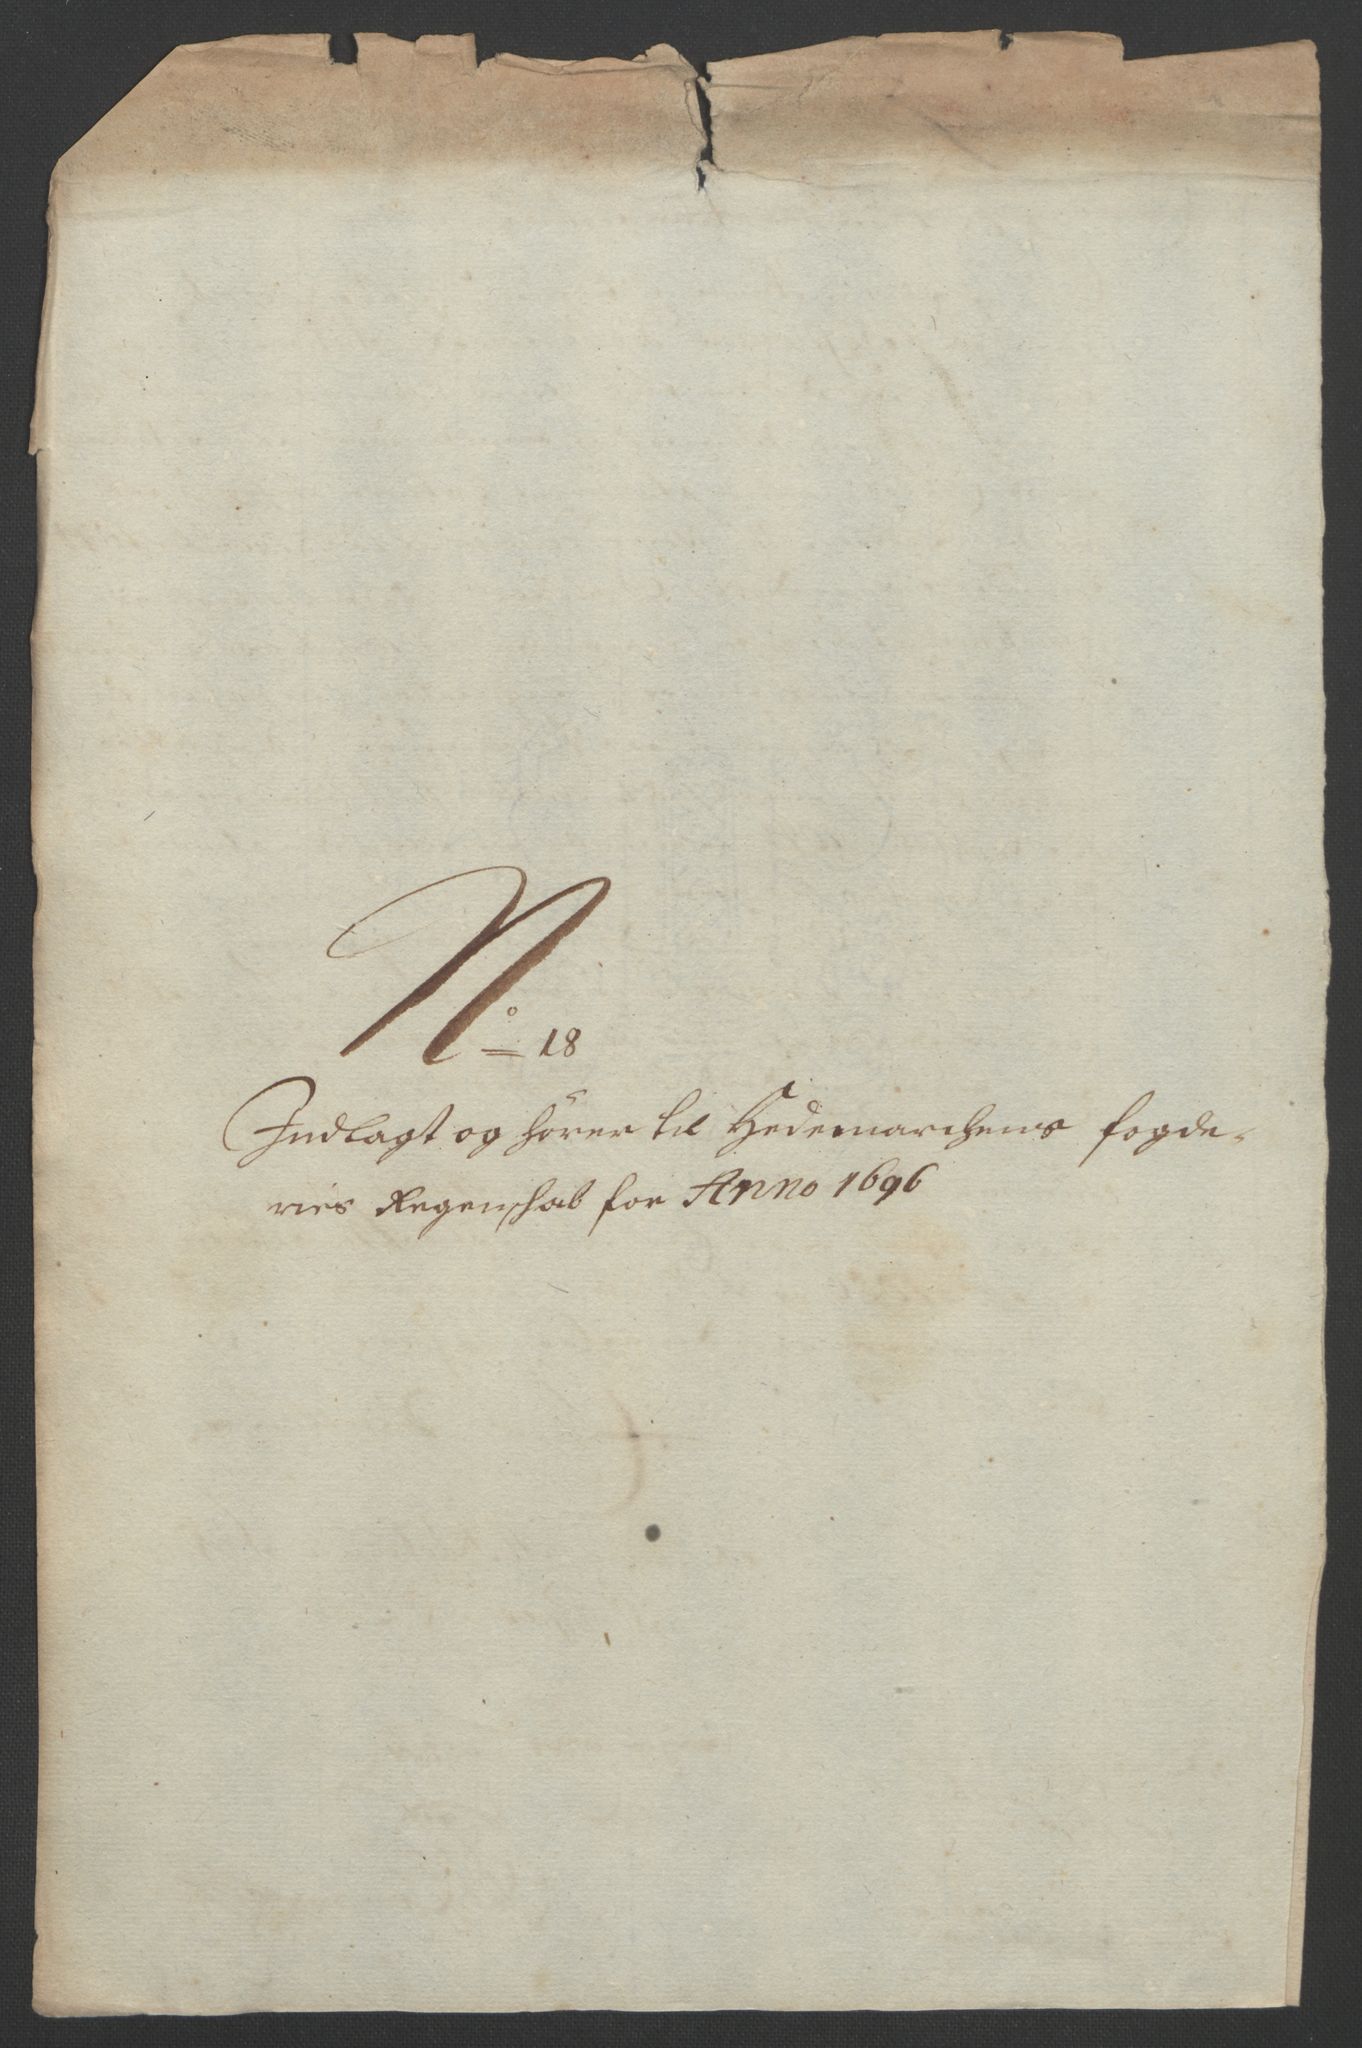 No 18
Indlagt og hörer til Hedemarchens fogde-
ries Regenschab for Anno 1696